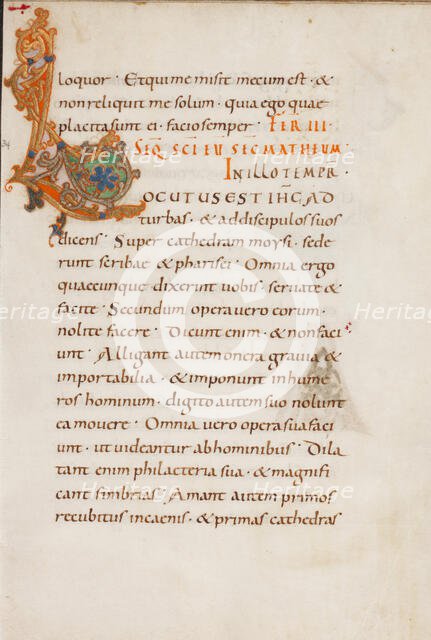 loquor · Et qui me misit mecum est · &
non reliquit me solum · quia ego quae
placita sunt ei · facio semper · FER III
SEQ SCI EU SEC MATHEUM
IN ILLO TEMPR
LOCUTUS EST IHC AD
turbas · & ad discipulos suos
dicens · Super cathedram moysi · sede
runt scribae & pharisei · Omnia ergo
quaecunque dixerint uobis · seruate &
facite · Secundum opera uero eorum ·
nolite facere · Dicunt enim · & non faci
unt · Alligant autem onera grauia &
importabilia · & imponunt in hume
ros hominum · digito autem suo nolunt
ea mouere · Omnia uero opera sua faci
unt · ut uideantur ab hominibus · Dila
tant enim philacteria sua · & magnifi
cant fimbrias · Amant autem primos
recubitus in caenis · & primas cathedras
34
Heritage
Heritage
Heritage
Heritage
Heritage
Heritage
C